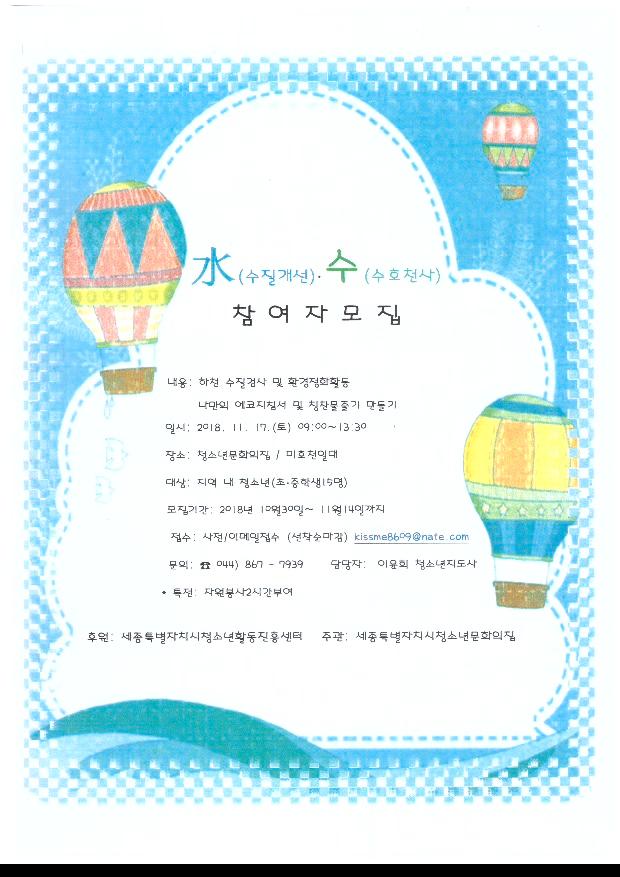 水(수질개선)·수(수호천사)
참 여 자 모 집
내용: 하천 수질검사 및 환경정화활동
나만의 에코지침서 및 칭찬물줄기 만들기
일시: 2018. 11. 17.(토) 09:00~13:30
장소: 청소년문화의집 / 미호천일대
대상: 지역 내 청소년(초·중학생15명)
모집기간: 2018년 10월30일~ 11월14일까지
접수: 사전/이메일접수 (선착순마감) kissme8609@nate.com
문의: ☎ 044) 867 - 7939 담당자: 이윤희 청소년지도사
* 특전: 자원봉사2시간부여
후원: 세종특별자치시청소년활동진흥센터 주관: 세종특별자치시청소년문화의집